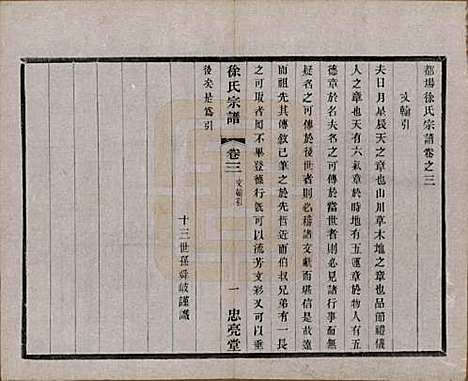 都場徐氏宗譜卷之三
文翰引
夫日月星辰天之章也山川草木地之章也品節禮儀
人之章也天有六氣章於時地有五運章於物人有五
德章於名夫名之可傳於當世者則必見諸行事而無
疑者之可傳於後世者則必稽諸文獻而堪信是故遠
而祖先其傳敘已筆之於先哲近而伯叔兄弟有一長
之可取者罔不畢登雖行既可以流芳文彩又可以垂
後矣是為引
徐氏宗譜
卷三
文翰引
一
忠亮堂
十三世孫舜岐謹識